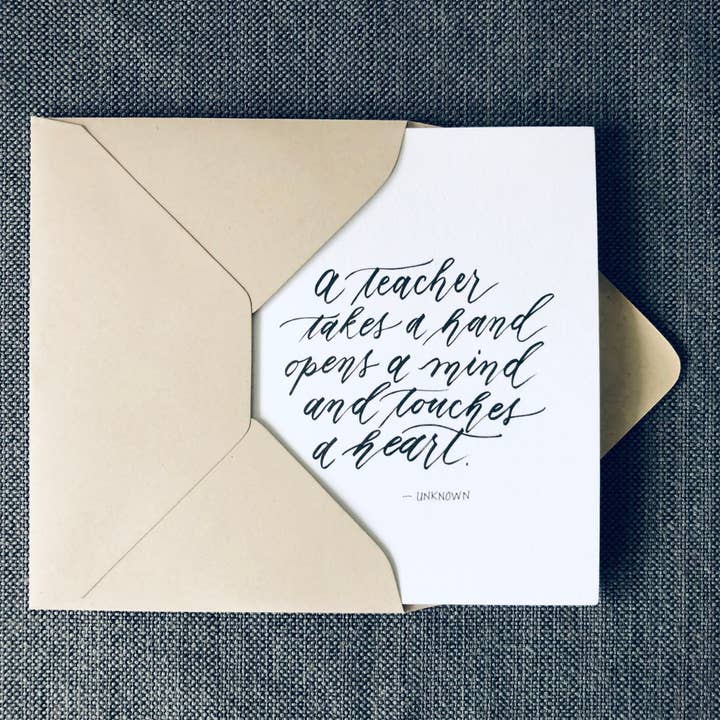 a teacher
takes a hand
opens a mind
and touches
a heart.
— UNKNOWN